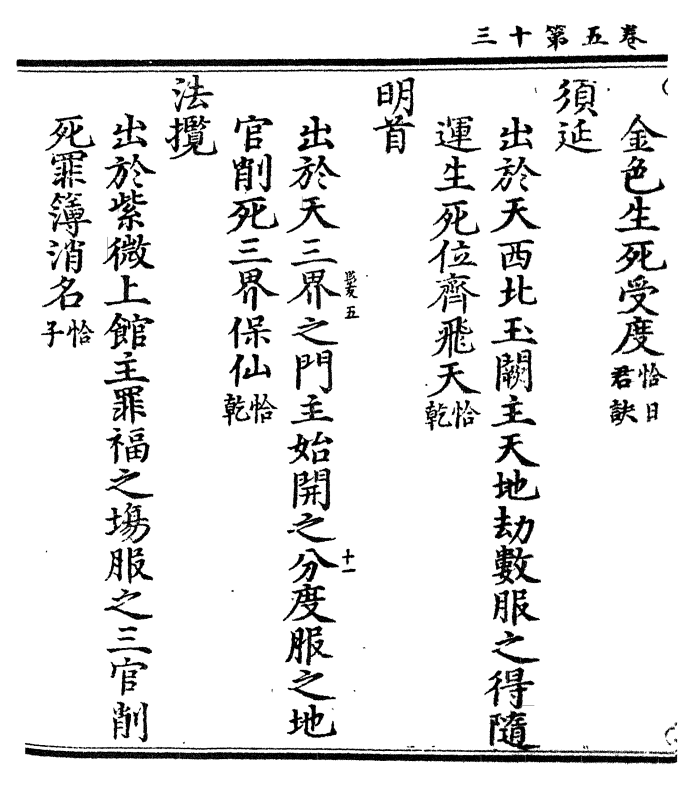 卷五第十三
金色生死受度恰日君訣
須延
出於天西北玉闕主天地劫數服之得隨
運生死位齊飛天恰乾
明首
五
十一
出於天三界之門主始開之分度服之地
官削死三界保仙恰乾
法攬
出於紫微上館主罪福之塲服之三官削
死罪簿消名恰子